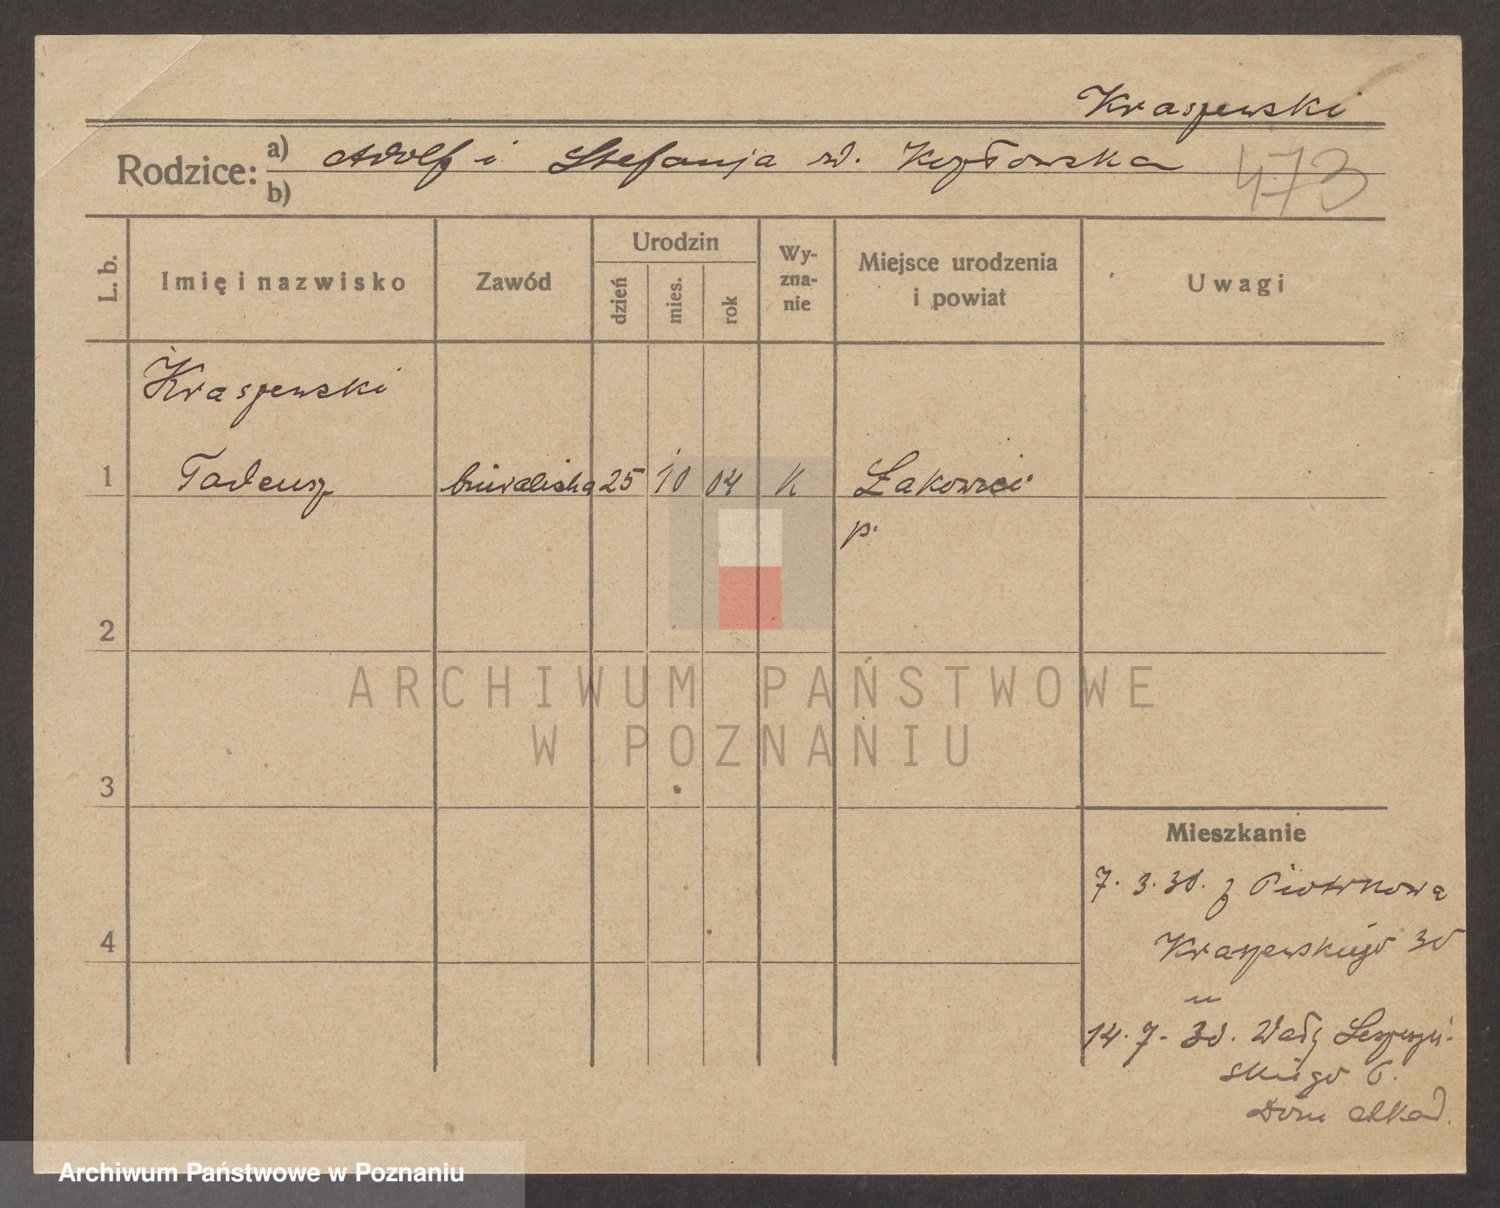 Kraszewski
Rodzice: a) Adolf i Stefanja zd. Kozłowska
b)
473
L. b.
Imię i nazwisko
Zawód
Urodzin
dzień
mies.
rok
Wy-
zna-
nie
Miejsce urodzenia
i powiat
Uwagi
Kraszewski
1 Tadeusz 25 10 04 K
p.
2
3
4
ARCHIWUM PAŃSTWOWE
W POZNANIU
Mieszkanie
7. 3. 30. z Piotrkowa
Kraszewskiego 30
14. 7. 30. Wały Leszczyń-
skiego 6.
Dom Akad.
Archiwum Państwowe w Poznaniu